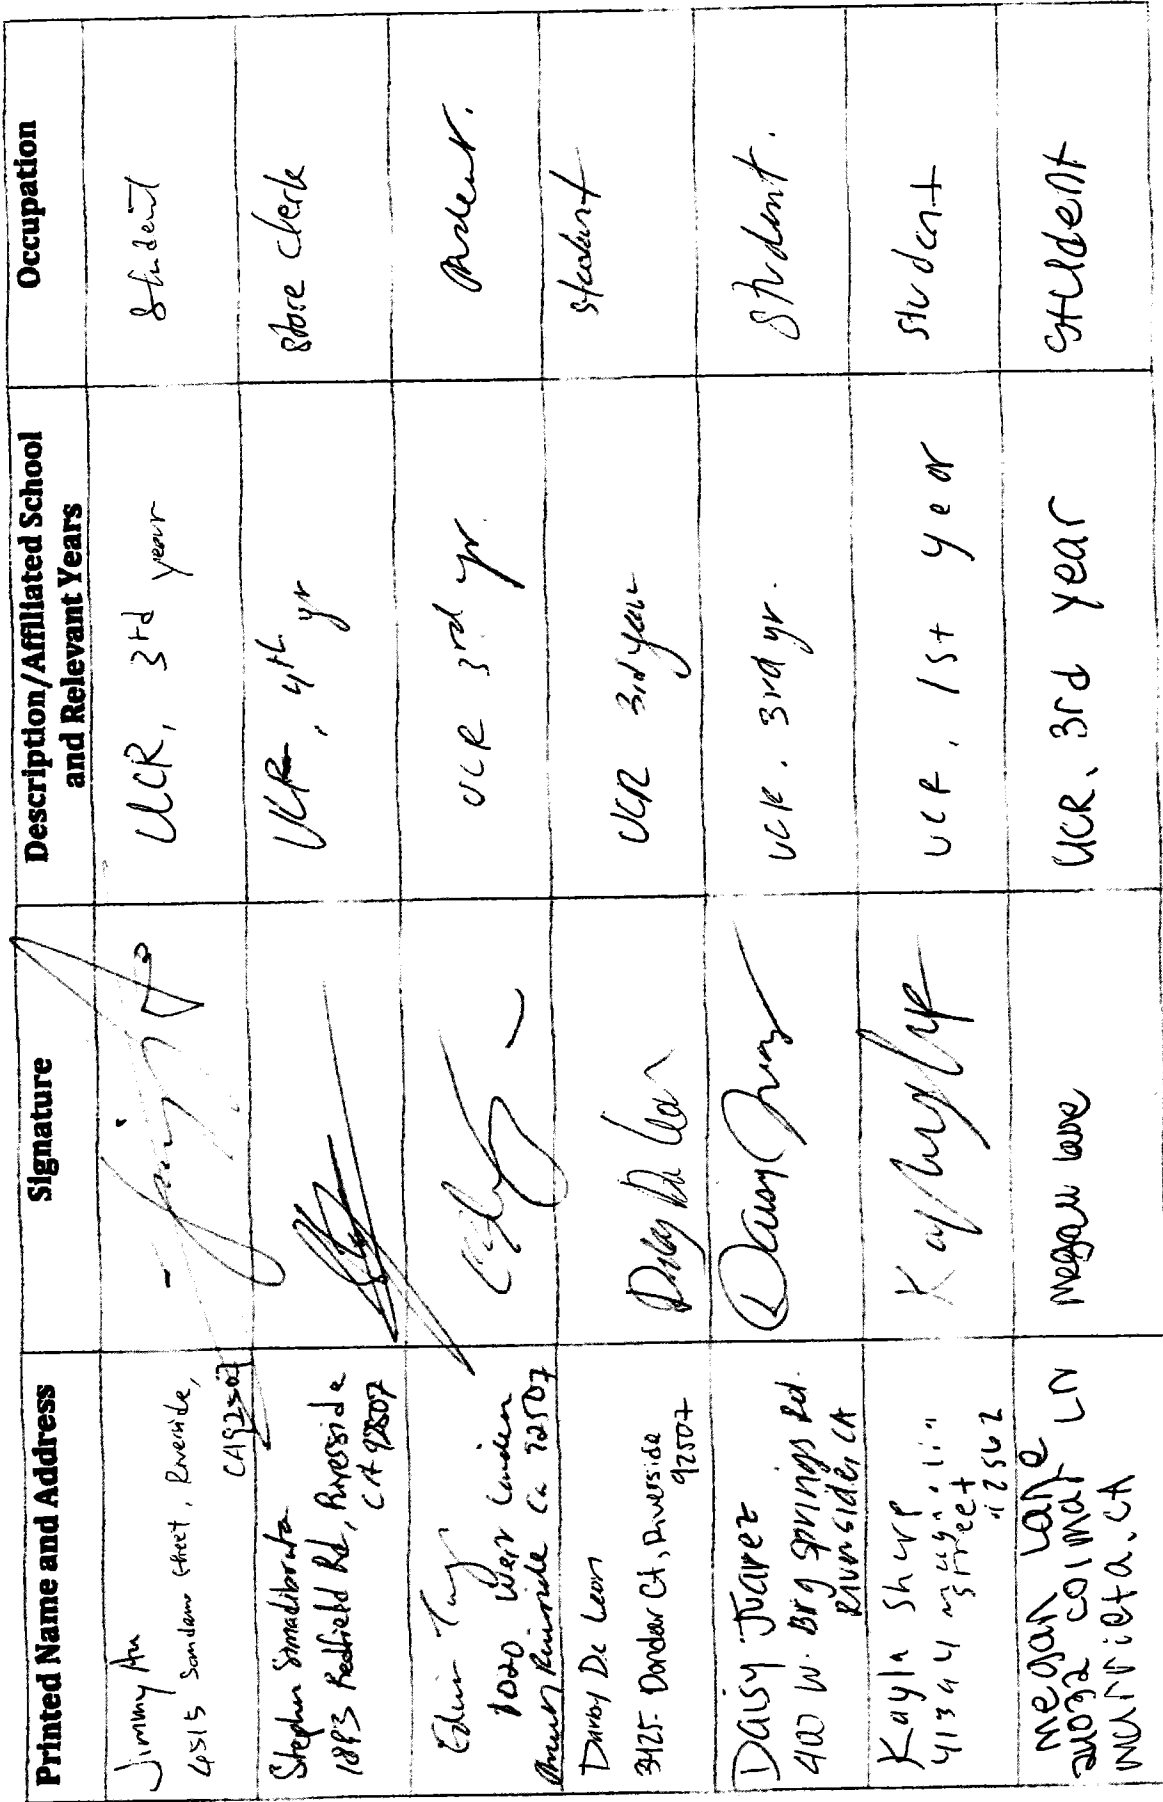 Printed Name and Address Signature Description/Affiliated School and Relevant Years Occupation
Jimmy Au
4515 Sandamo street, Riverside,
CA 92507
UCR, 3rd year
Student
Stephen Simadibrata
1893 Redfield Rd, Riverside
CA 92507
UCR, 4th yr
store clerk
Edwin
1020 West Linden
Riverside Ca 92507
UCR 3rd yr.
student.
Darby De Leon
3425 Dondar Ct, Riverside
92507
Darby De Leon
UCR 3rd year
student
Daisy Juarez
400 W. Big Springs Rd.
Riverside, CA
Daisy Juarez
UCR. 3rd yr.
student.
Kayla Sharp
41344
street
92562
Kayla
UCR, 1st year
student
megan Lane
24032 colmar LN
murrieta, CA
megan lane
UCR, 3rd year
student